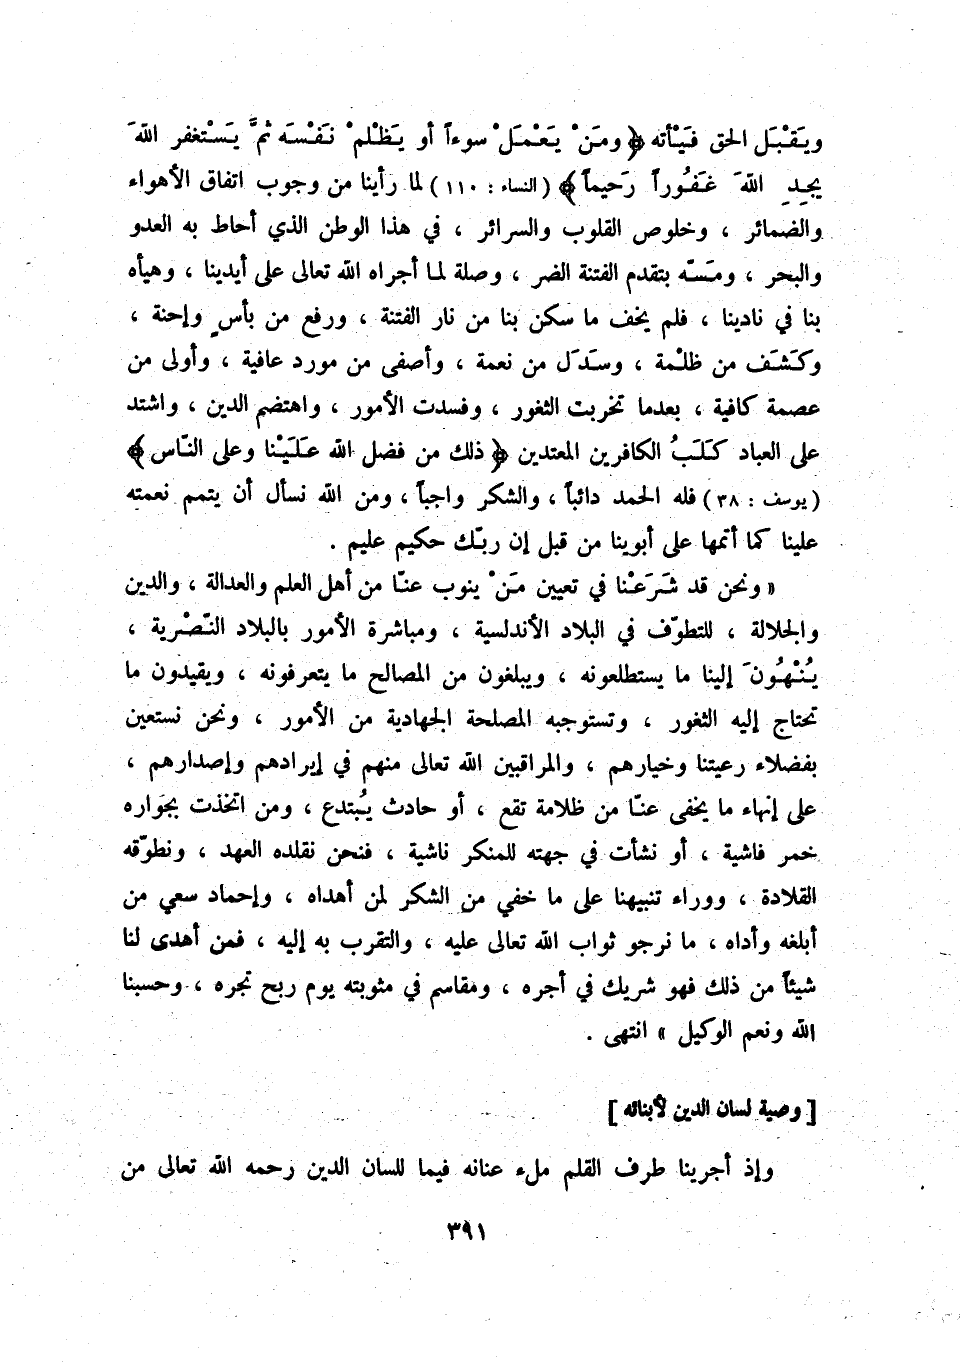 ويَقْبَل الحق فَيْأته ﴿ ومَنْ يَعْمَلْ سوءاً أو يَظْلمْ نَفْسَه ثمَّ يَسْتغفر اللهَ
يجِدِ اللهَ غَفُوراً رَحيماً ﴾ ( النساء : ١١٠ ) لما رأينا من وجوب اتفاق الأهواء
والضمائر ، وخلوص القلوب والسرائر ، في هذا الوطن الذي أحاط به العدو
والبحر ، ومَسّه بتقدم الفتنة الضر ، وصلة لما أجراه الله تعالى على أيدينا ، وهيأه
بنا في نادينا ، فلم يخف ما سكن بنا من نار الفتنة ، ورفع من بأسٍ وإحنة ،
وكَشَف من ظلْمة ، وسَدَل من نعمة ، وأصفى من مورد عافية ، وأولى من
عصمة كافية ، بعدما تخربت الثغور ، وفسدت الأمور ، واهتضم الدين ، واشتد
على العباد كَلَبُ الكافرين المعتدين ﴿ ذلك من فضل الله عَلَيْنا وعلى النّاس ﴾
( يوسف : ٣٨ ) فله الحمد دائباً ، والشكر واجباً ، ومن الله نسأل أن يتمم نعمته
علينا كما أتمها على أبوينا من قبل إن ربّك حكيم عليم .
« ونحن قد شَرَعْنا في تعيين مَنْ ينوب عنّا من أهل العلم والعدالة ، والدين
والجلالة ، للتطوّف في البلاد الأندلسية ، ومباشرة الأمور بالبلاد النّصْرية ،
يُنْهُونَ إلينا ما يستطلعونه ، ويبلغون من المصالح ما يتعرفونه ، ويقيدون ما
تحتاج إليه الثغور ، وتستوجبه المصلحة الجهادية من الأمور ، ونحن نستعين
بفضلاء رعيتنا وخيارهم ، والمراقبين الله تعالى منهم في إيرادهم وإصدارهم ،
على إنهاء ما يخفى عنّا من ظلامة تقع ، أو حادث يُبتدع ، ومن اتخذت بجَواره
خمر فاشية ، أو نشأت في جهته للمنكر ناشية ، فنحن نقلده العهد ، ونطوّقه
القلادة ، ووراء تنبيهنا على ما خفي من الشكر لمن أهداه ، وإحماد سعي من
أبلغه وأداه ، ما نرجو ثواب الله تعالى عليه ، والتقرب به إليه ، فمن أهدى لنا
شيئاً من ذلك فهو شريك في أجره ، ومقاسم في مثوبته يوم ربح تجره ، وحسبنا
الله ونعم الوكيل » انتهى .
[ وصية لسان الدين لأبنائه ]
وإذ أجرينا طرف القلم ملء عنانه فيما للسان الدين رحمه الله تعالى من
٣٩١